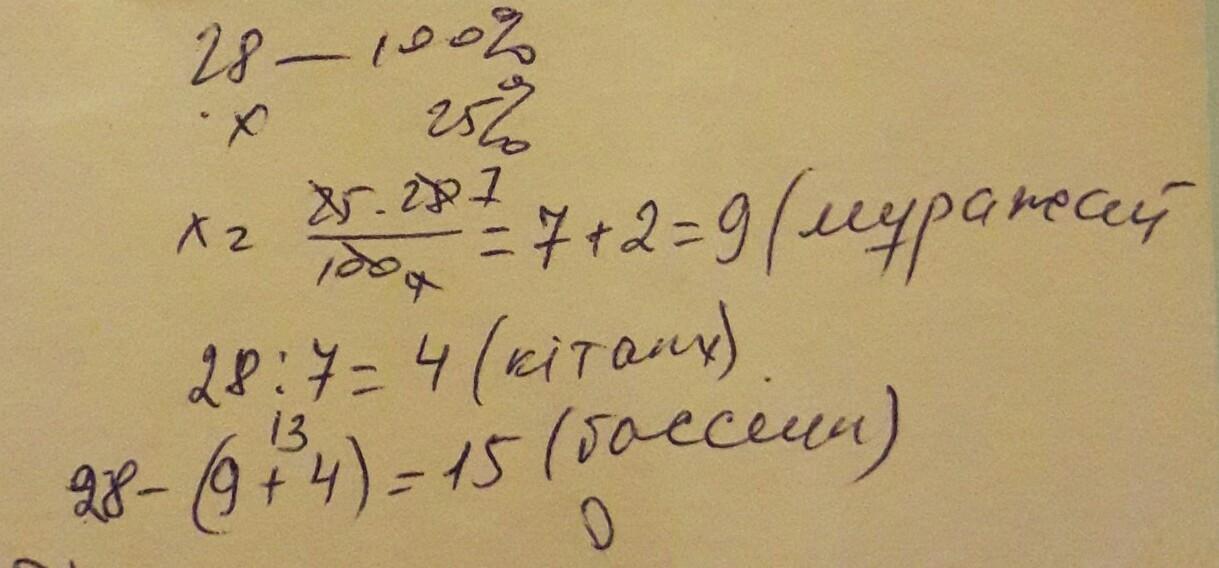 28 — 100%
x 25%
x = 25 · 28 7 / 100 4 = 7 + 2 = 9 (муражай
28 : 7 = 4 (кітапх)
13
28 - (9 + 4) = 15 (бассейн)
D